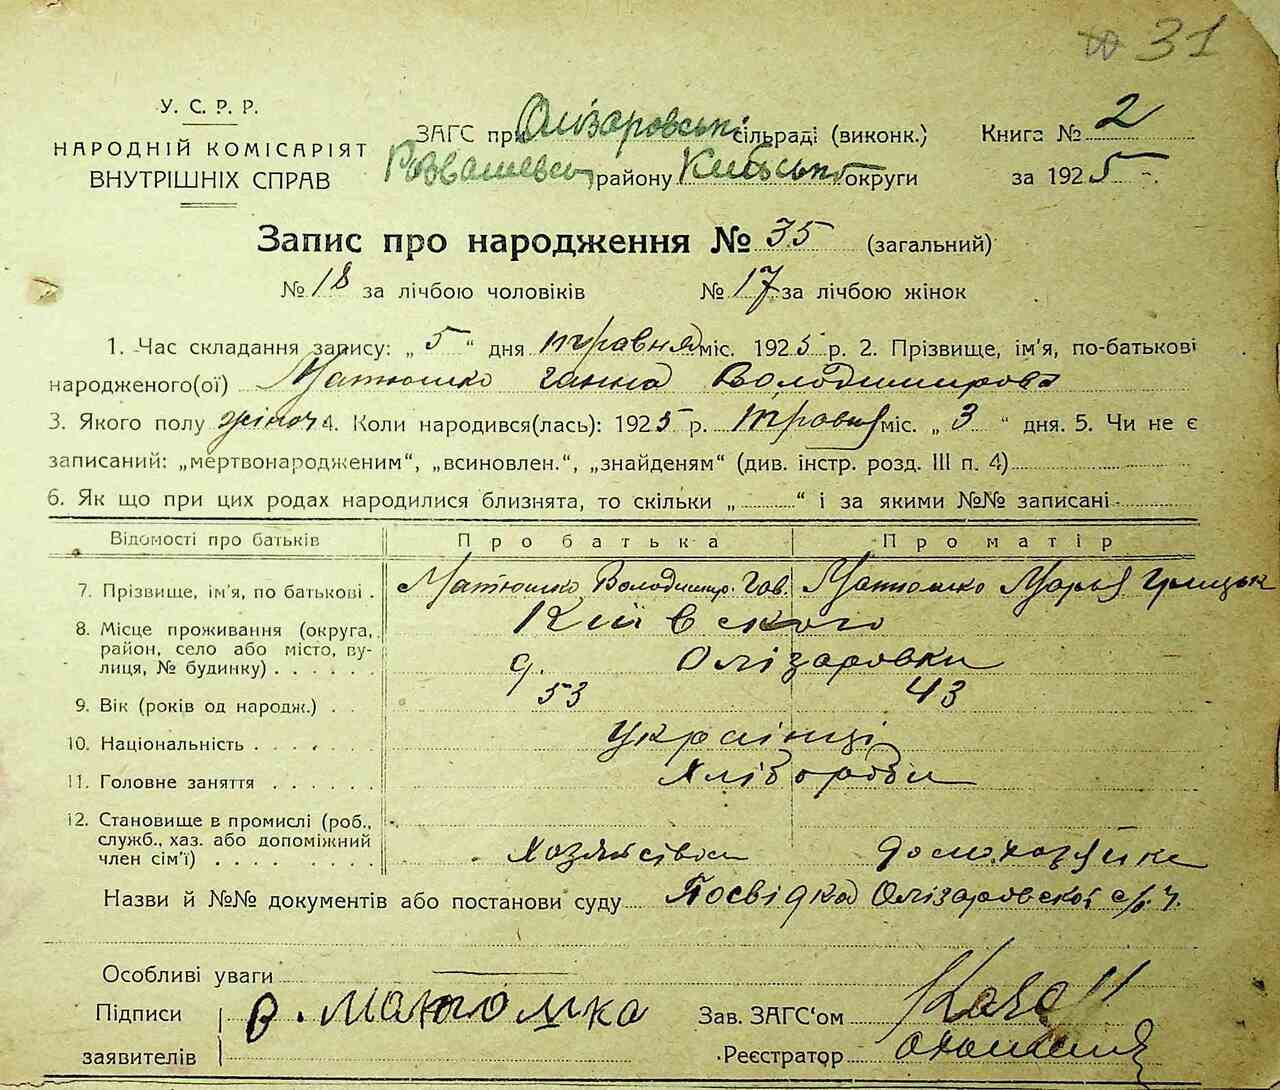 31
У. С. Р. Р.
НАРОДНІЙ КОМІСАРІЯТ
ВНУТРІШНІХ СПРАВ
ЗАГС при Олізаровськ. сільраді (виконк.)
Розважевськ району Київськ округи
Книга № 2
за 1925
Запис про народження № 35 (загальний)
№ 18 за лічбою чоловіків № 17 за лічбою жінок
1. Час складання запису: „ 5 “ дня травня міс. 1925 р. 2. Прізвище, ім'я, по-батькові
народженого(ої) Матюшко Ганна Володимирова
3. Якого полу жіноч 4. Коли народився(лась): 1925 р. травня міс. „ 3 “ дня. 5. Чи не є
записаний: „мертвонародженим“, „всиновлен.“, „знайденям“ (див. інстр. розд. III п. 4)
6. Як що при цих родах народилися близнята, то скільки „ “ і за якими №№ записані
Відомості про батьків Про батька Про матір
7. Прізвище, ім'я, по батькові . Матюшко Володимир. Гав. Матюшко Марья Грицьк
8. Місце проживання (округа, Київского
район, село або місто, ву-
лиця, № будинку) . . . . . . с. Олізаровки
9. Вік (років од народж.) . . 53 43
10. Національність . . . . . . Українці
11. Головне заняття . . . . . . Хлібороби
12. Становище в промислі (роб.,
служб., хаз. або допоміжний
член сім'ї) . . . . . . . . Домохазяйка
Назви й №№ документів або постанови суду Посвідка Олізаровскої с/р.
Особливі уваги
Підписи В. Матюшка Зав. ЗАГС'ом
заявителів Реєстратор